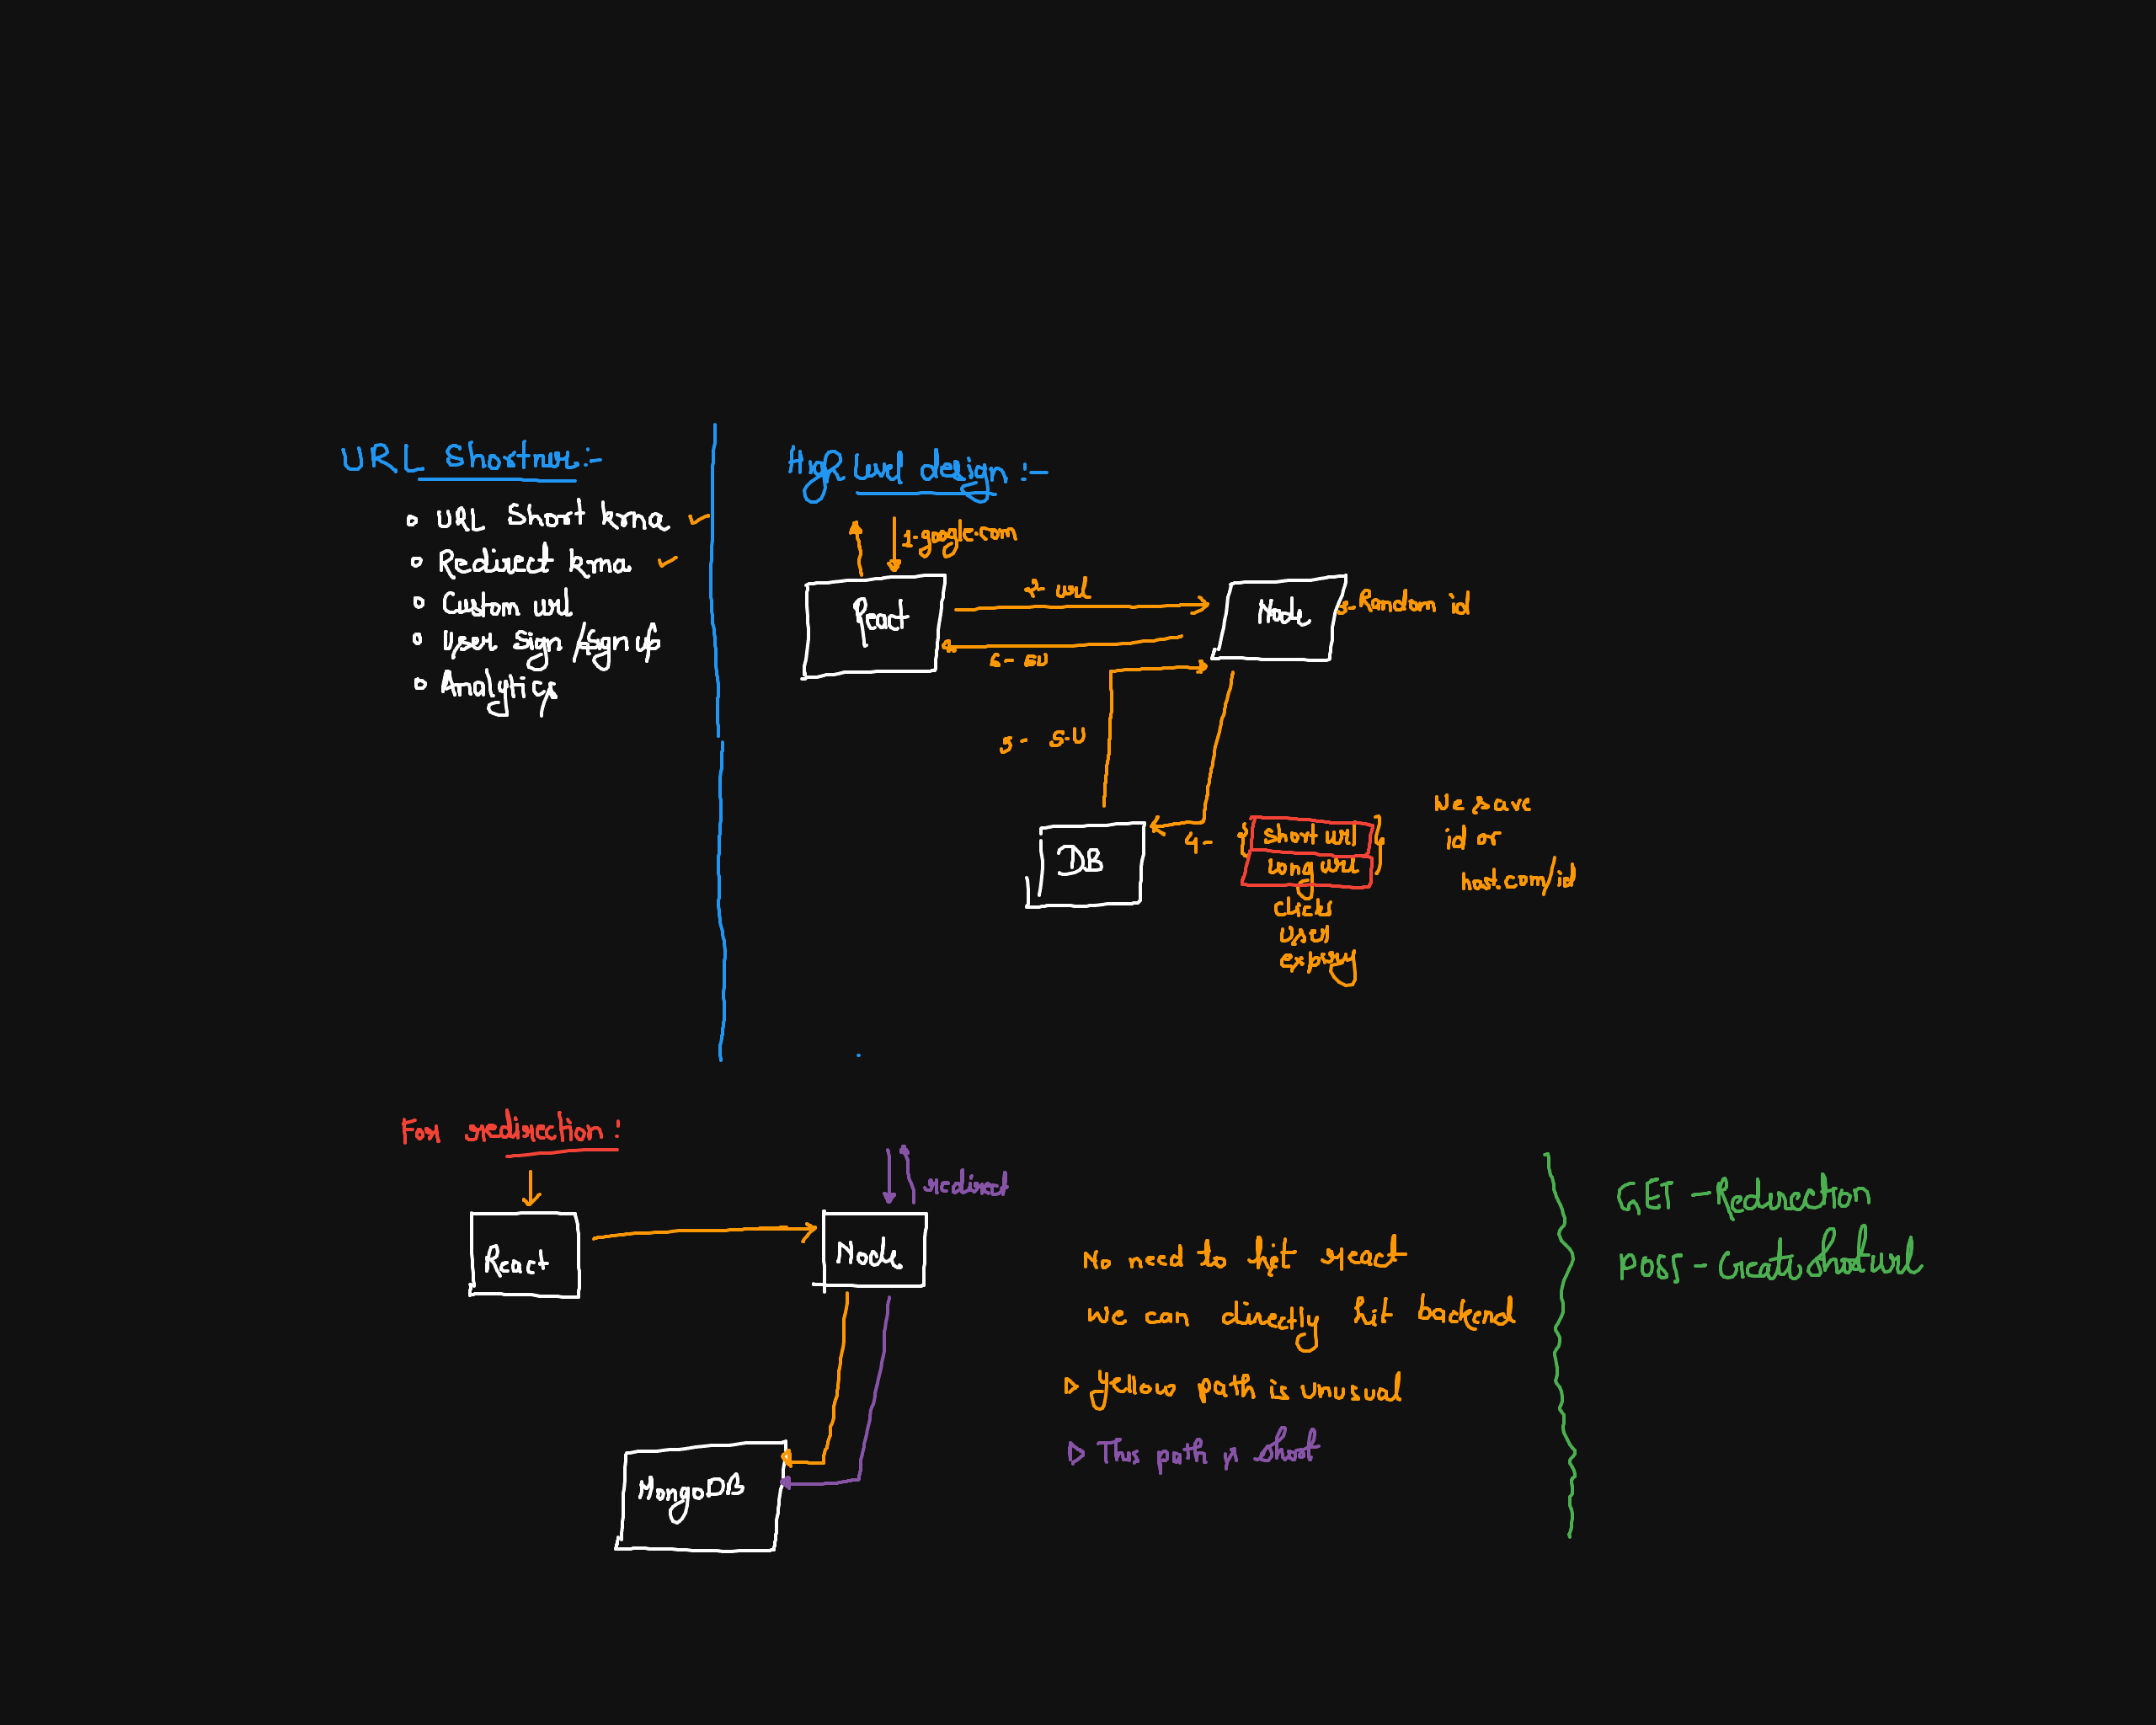 URL Shortner:-
URL Short krna
Redirect krna
Custom url
User sign/sign up
Analytics
High level design :-
1-google.com
2- url
React
Node
3-Random id
6- SU
5- S.U
DB
4-
short url
long url
clicks
user
expiry
We save
id or
host.com/id
For redirection:
redirect
React
Node
MongoDB
No need to hit react
we can directly hit backend
yellow path is unusual
This path is short
GET - Redirection
POST - Create Short url